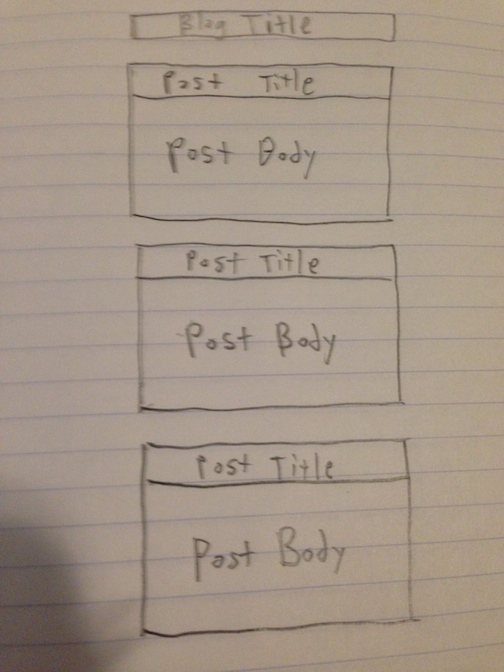 Blog Title
Post Title
Post Body
Post Title
Post Body
Post Title
Post Body